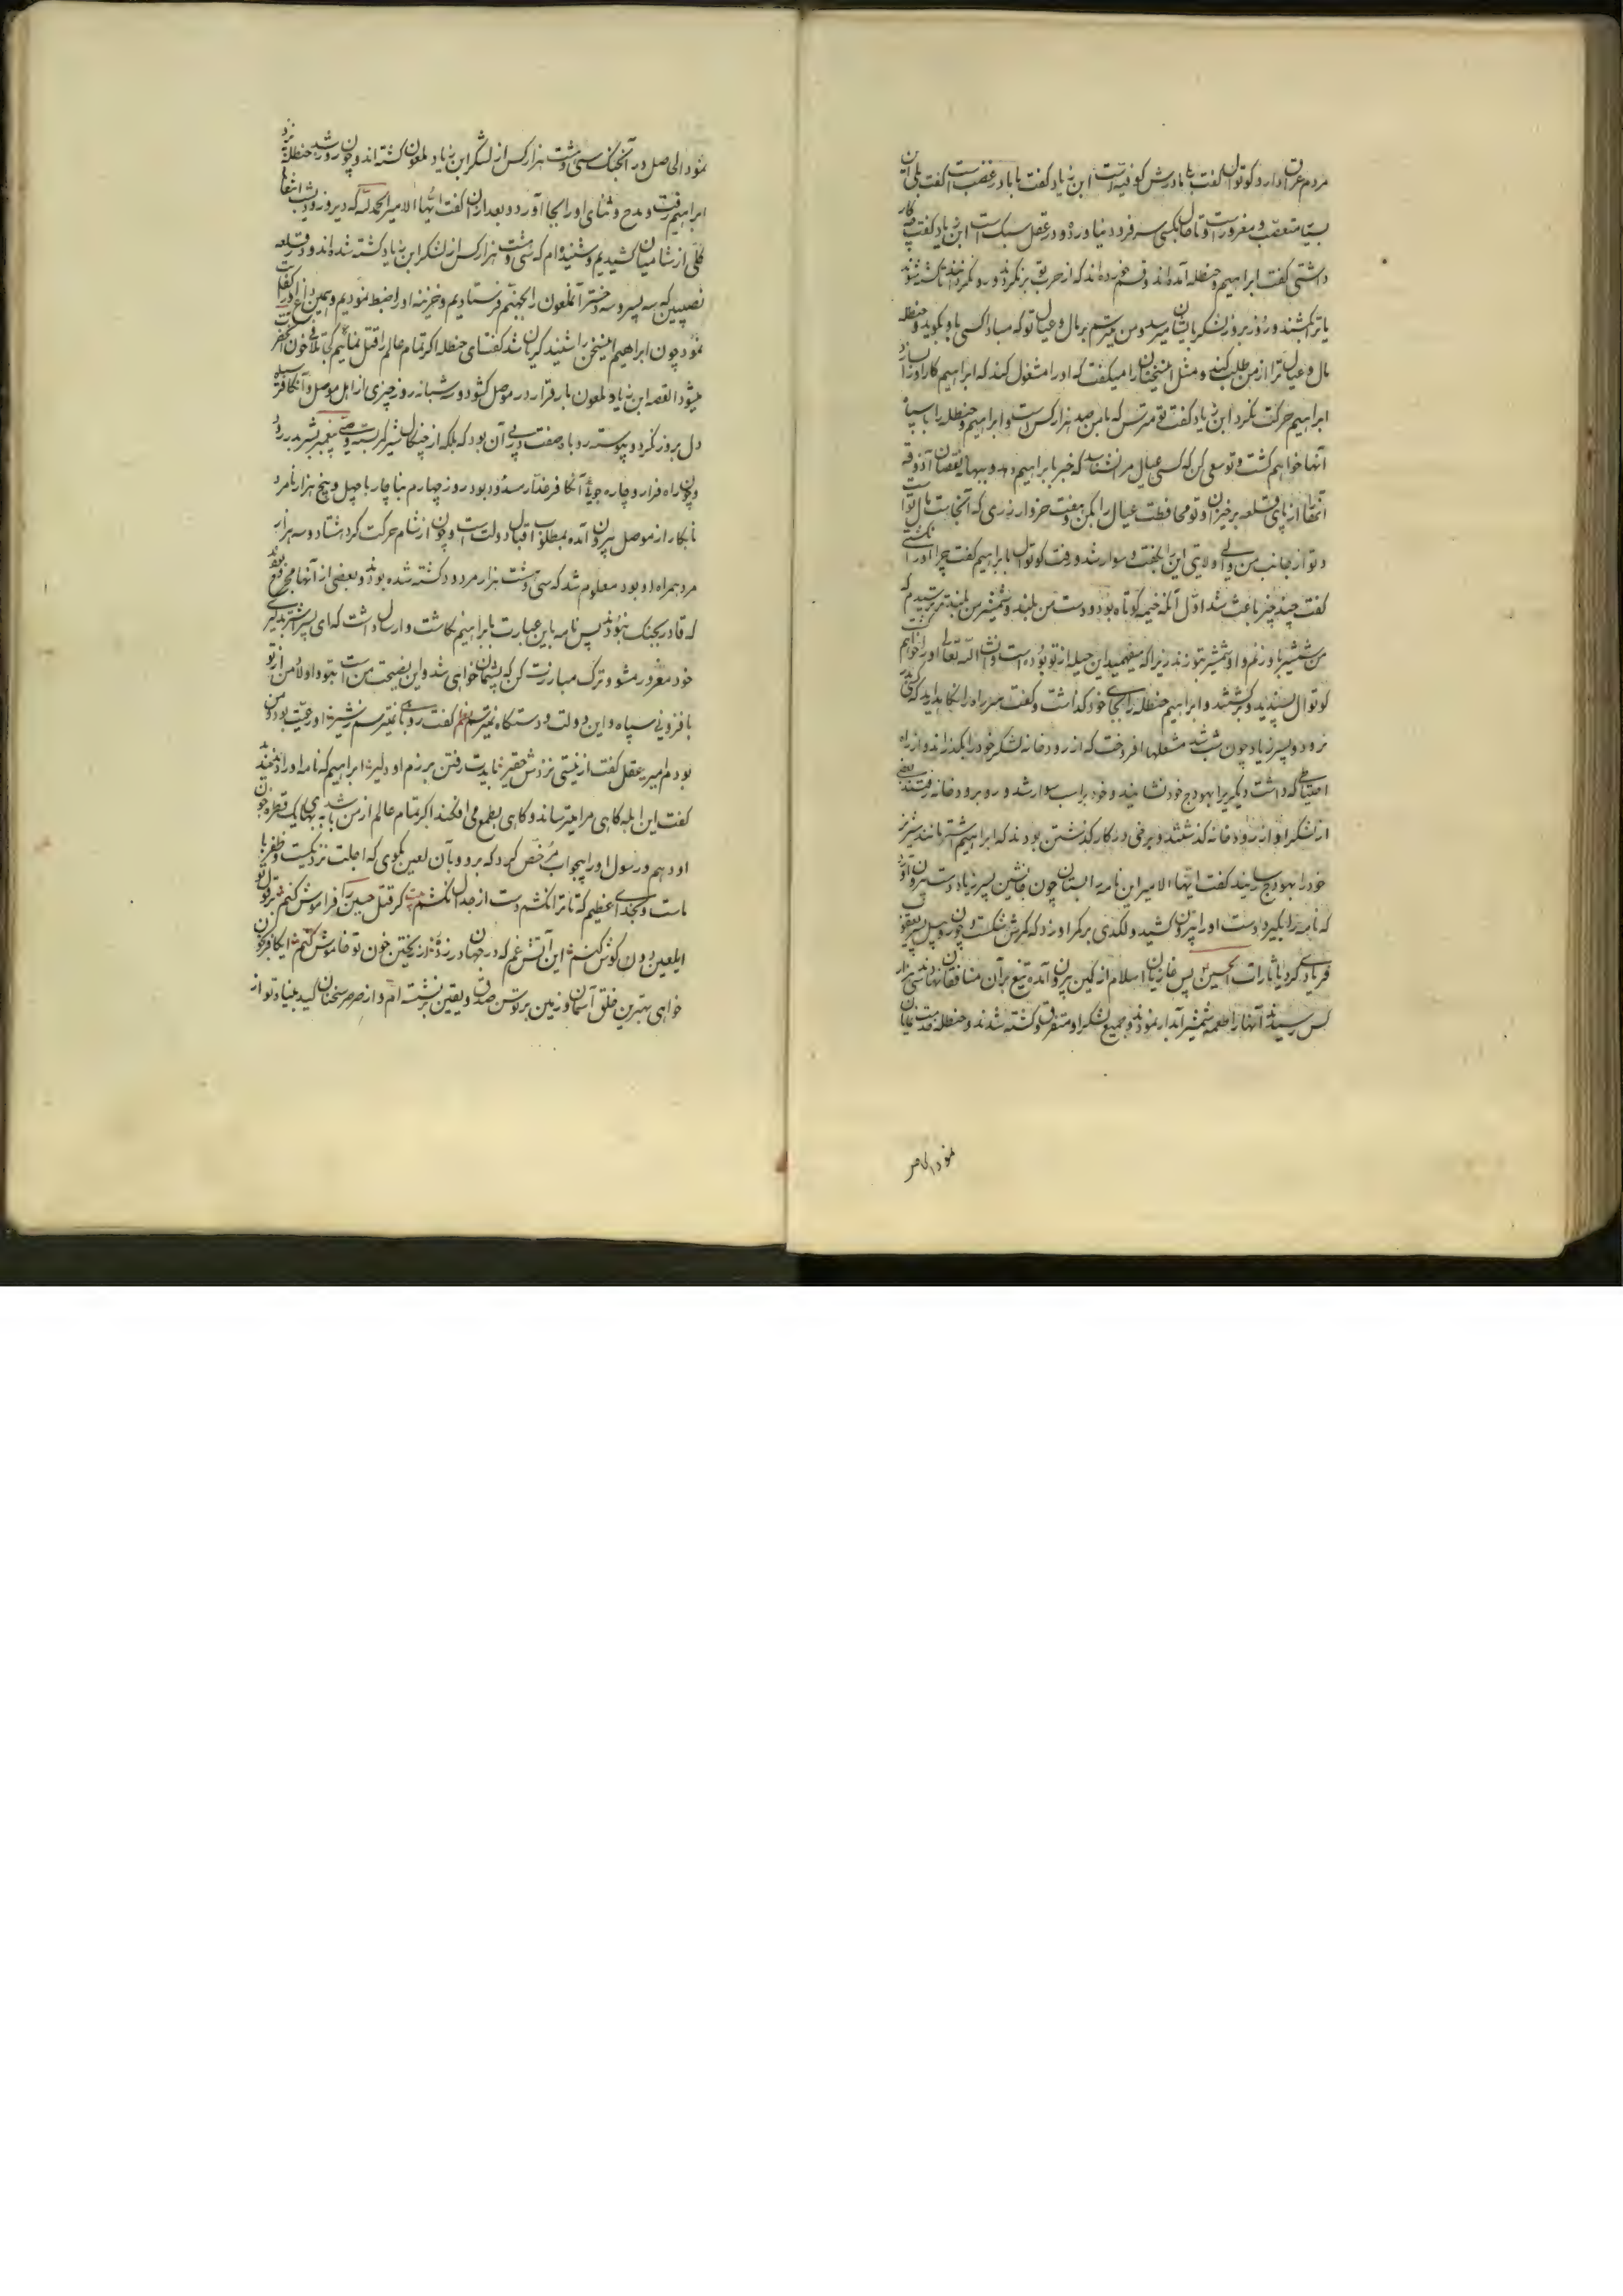 مردم عراق دارد کوتوال گفت با مادرش کوفیه است ابن زیاد گفت با ما در غضب است گفت بلی آن
بسیار متعصب و مغرور است و تا حال بکسی سر فرود نیاورده و در عقل سبک است ابن زیاد گفت چه کار
داشتی گفت ابراهیم و حنظله آمده‌اند و قسم خورده‌اند که از حرب تو برنگردند تا کشته شوند
یا ترا بکشند و روز بروز لشکر بایشان میرسد و من میترسم بر مال و عیال تو که مبادا کسی باو بگوید و حنظله
مال و عیال ترا از من طلب کند و مثل این سخنان را میگفت که او را مشغول کند که ابراهیم کار او را بسازد
ابراهیم حرکت نکرد ابن زیاد گفت تو مترس که با من صد هزار کس است و ابراهیم و حنظله را با سپاه
آنها خواهم کشت و تو سعی کن که کسی عیال مرا نشناسد که خبر بابراهیم دهد و ببهانه نقصان آذوقه
از پای قلعه برخیزان و تو محافظت عیال را بکن و هفت خروار زری که آنجاست مال تو است
و تو از جانب من والی ولایتی این را گفت و سوار شد و رفت کوتوال بابراهیم گفت چرا او را نکشتی
گفت چند چیز باعث شد اول آنکه خیمه کوتاه بود و دست من بلند و شمشیر من بلندتر ترسیدم که
من شمشیر باو زنم و او شمشیر بتو زند زیرا که میفهمید این حیله از تو بوده است و انشاء الله تعالی او را خواهم
کوتوال پسندید و برگشتند و ابراهیم حنظله را بجای خود گذاشت و گفت سر راه را نگاهدارید که کسی
نرود و پسر زیاد چون شب شد مشعلها افروخت که از رودخانه لشکر خود را بگذراند و از راه
احتیاطی که داشت دیگری را بهودج خود نشانید و خود بر اسب سوار شد و رو برودخانه رفتند بعضی
از لشکر او از رودخانه گذشتند و برخی در کار گذشتن بودند که ابراهیم اشتر مانند شیر نر
خود را بهودج رسانید گفت ایها الامیر این نامه را بستان چون جانشین پسر زیاد دست بیرون آورد
که نامه را بگیرد دست او را بیرون کشید و لگدی بر کمر او زد که کمرش شکست و چون
فریادی کرد یا ثارات الحسین پس غازیان اسلام از کمین بیرون آمده تیغ بر آن منافقان نهادند سی هزار
کس رسیدند آنها را طعمه شمشیر آبدار نمودند و جمیع لشکر او متفرق و کشته شدند و حنظله
نمود الحاصل
نمود الحاصل در آنجنگ سی و هشت هزار کس از لشکر ابن زیاد ملعون کشته‌اند و چون روز شد حنظله نزد
ابراهیم رفت و مدح و ثنای او را بجا آورد و بعد از آن گفت ایها الامیر الحمد لله که دیروز و دیشب انتقام
کلی از شامیان کشیدیم و شنیده‌ام که سی و هشت هزار کس از لشکر ابن زیاد کشته شده‌اند و در قلعه
نصیبین که سه پسر و سه دختر آنملعون را بجهنم فرستادیم و خزینه او را ضبط نمودیم و همین
نمود چون ابراهیم این سخن را شنید گریان شد گفت ای حنظله اگر تمام عالم را قتل نمائیم کی تلافی خون
میشود القصه ابن زیاد ملعون بار قرار در موصل گشود و در سه شبانه روز چیزی از اهل موصل و آنکافر سیاه
دل بروز نکرد و پیوسته روباه صفت در پی آن بود که بلکه از چنگال شیر کمر بسته وصی پیغمبر بدر رود
و چون راه فرار و چاره جوئی آنکافر غدار مسدود بود روز چهارم بناچار با چهل و پنج هزار نامرد
نابکار از موصل بیرون آمده بمطلوب اقبال دولت است و چون از شام حرکت کرد هشتاد و سه هزار
مرد همراه او بود معلوم شد که سی و هشت هزار مردود کشته شده بودند و بعضی از آنها مجروح بودند
که قادر بجنگ نبودند پس نامه باین عبارت بابراهیم نگاشت و ارسال داشت که ای پسر اشتر بدلیری
خود مغرور مشو و ترک مبارزت کن که پشیمان خواهی شد و این نصیحت من است بتو و اولا من از تو
با فزونی سپاه و این دولت و دستگاه نمیترسم نظم گفت روباهی نمیترسم ز شیر او رعیت بود و من
بودم امیر عقل گفت از نیستی نزدش حقیر بایدت رفتن برزم او دلیر ابراهیم که نامه او را خواند
گفت این ابله گاهی مرا میترساند و گاهی بطمع می‌افکند اگر تمام عالم از من باشد ببهای یک قطره خون
او دهم و رسول او را بیجواب مرخص کرد که برو و بآن لعین بگوی که اجلت نزدیکست و ظفر با
ماست و بخدای عظیم که تا ترا نکشم دست از جدال نکشم بیت گر قتل حسین را فراموش کنم قول تو
ایلعین دون گوش کنم این آتش غم که در جهان در زده‌اند از ریختن خون تو خاموش کنم ایکافر چون
خواهی بهترین خلق آسمان و زمین بر توسن صدق و یقین بنشسته‌ام و از صرصر سخنان کید بنیاد تو از